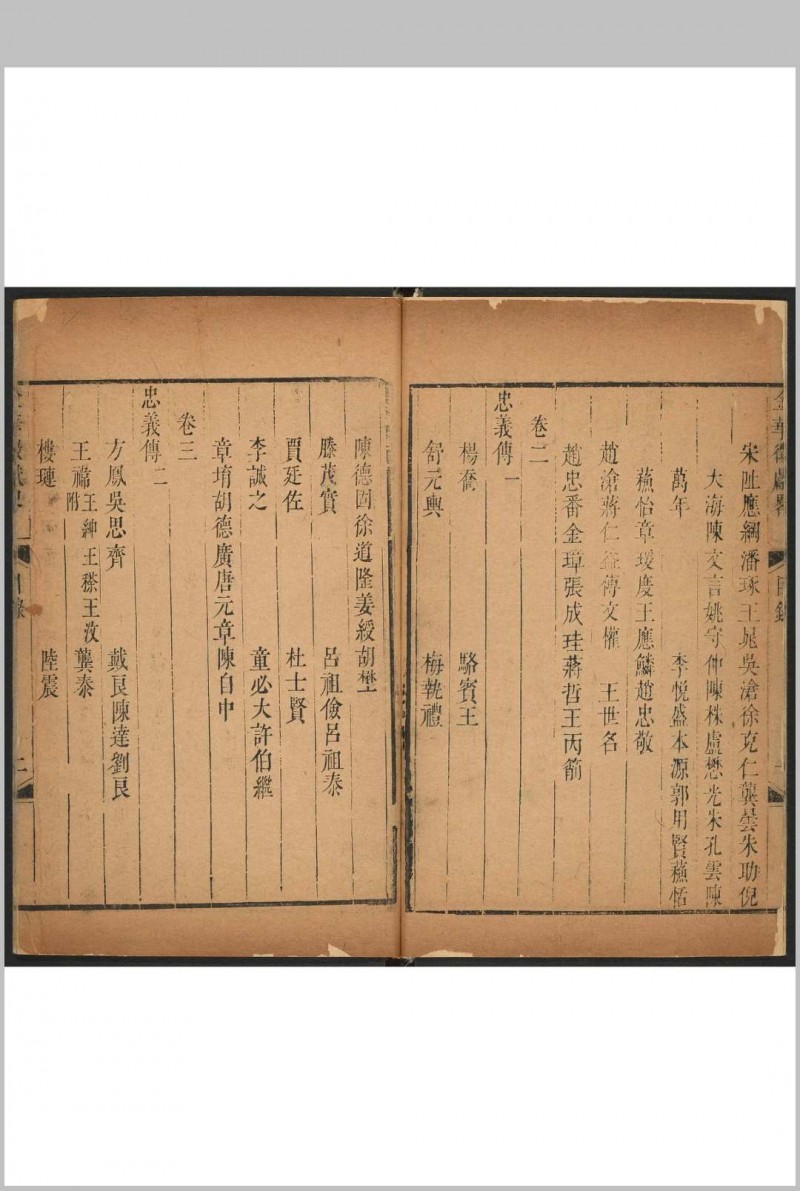 金華徵獻畧 目錄
宋阯應綱潘琢王晁吳滄徐克仁龔曇朱助倪
大海陳文言姚守仲陳株盧懋光朱孔雲陳
萬年 李悅盛本源郭用賢蘓恬
蘓怡章瑗慶王應鱗趙忠敬
趙滄蔣仁益傅文權 王世名
趙忠番金璋張成珪蔣哲王丙箭
卷二
忠義傳一
楊喬 駱賓王
舒元輿 梅執禮
陳德固徐道隆姜綬胡埜
滕茂實 呂祖儉呂祖泰
賈廷佐 杜士賢
李誠之 童必大許伯繼
章堉胡德廣唐元章陳自中
卷三
忠義傳二
方鳳吳思齊 戴良陳達劉良
王禕附王紳王稌王汶 龔泰
樓璉 陸震
目錄 二